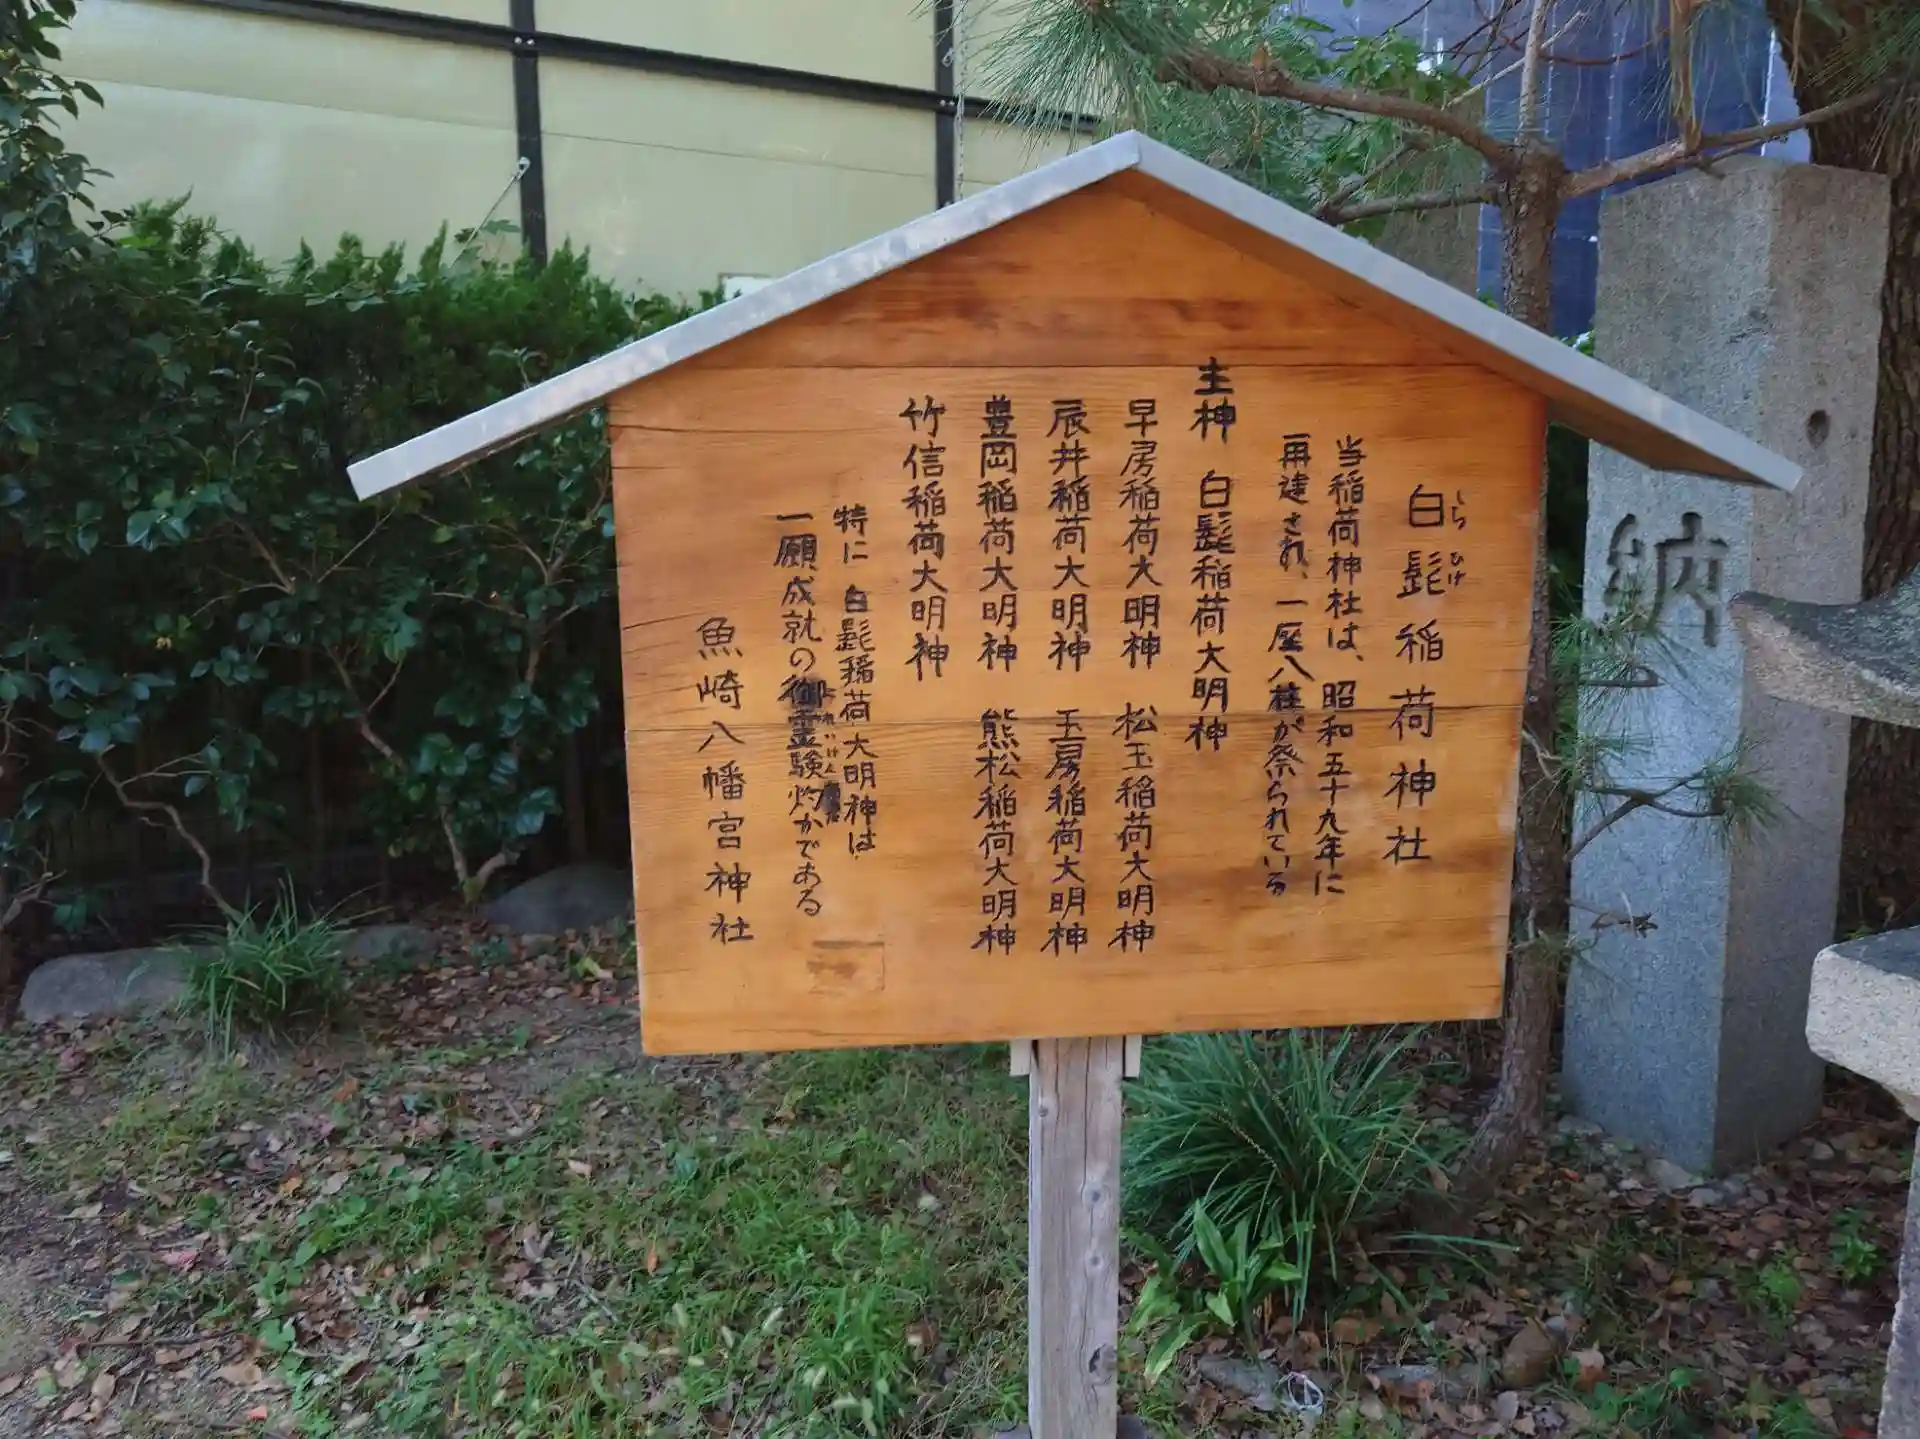 白髭稲荷神社
しらひげ
当稲荷神社は、昭和五十九年に
再建され、一座八柱が祭られている
主神 白髭稲荷大明神
早房稲荷大明神 松玉稲荷大明神
辰井稲荷大明神 玉房稲荷大明神
豊岡稲荷大明神 熊松稲荷大明神
竹信稲荷大明神
特に 白髭稲荷大明神は
一願成就の御霊験灼かである
魚崎八幡宮神社
納